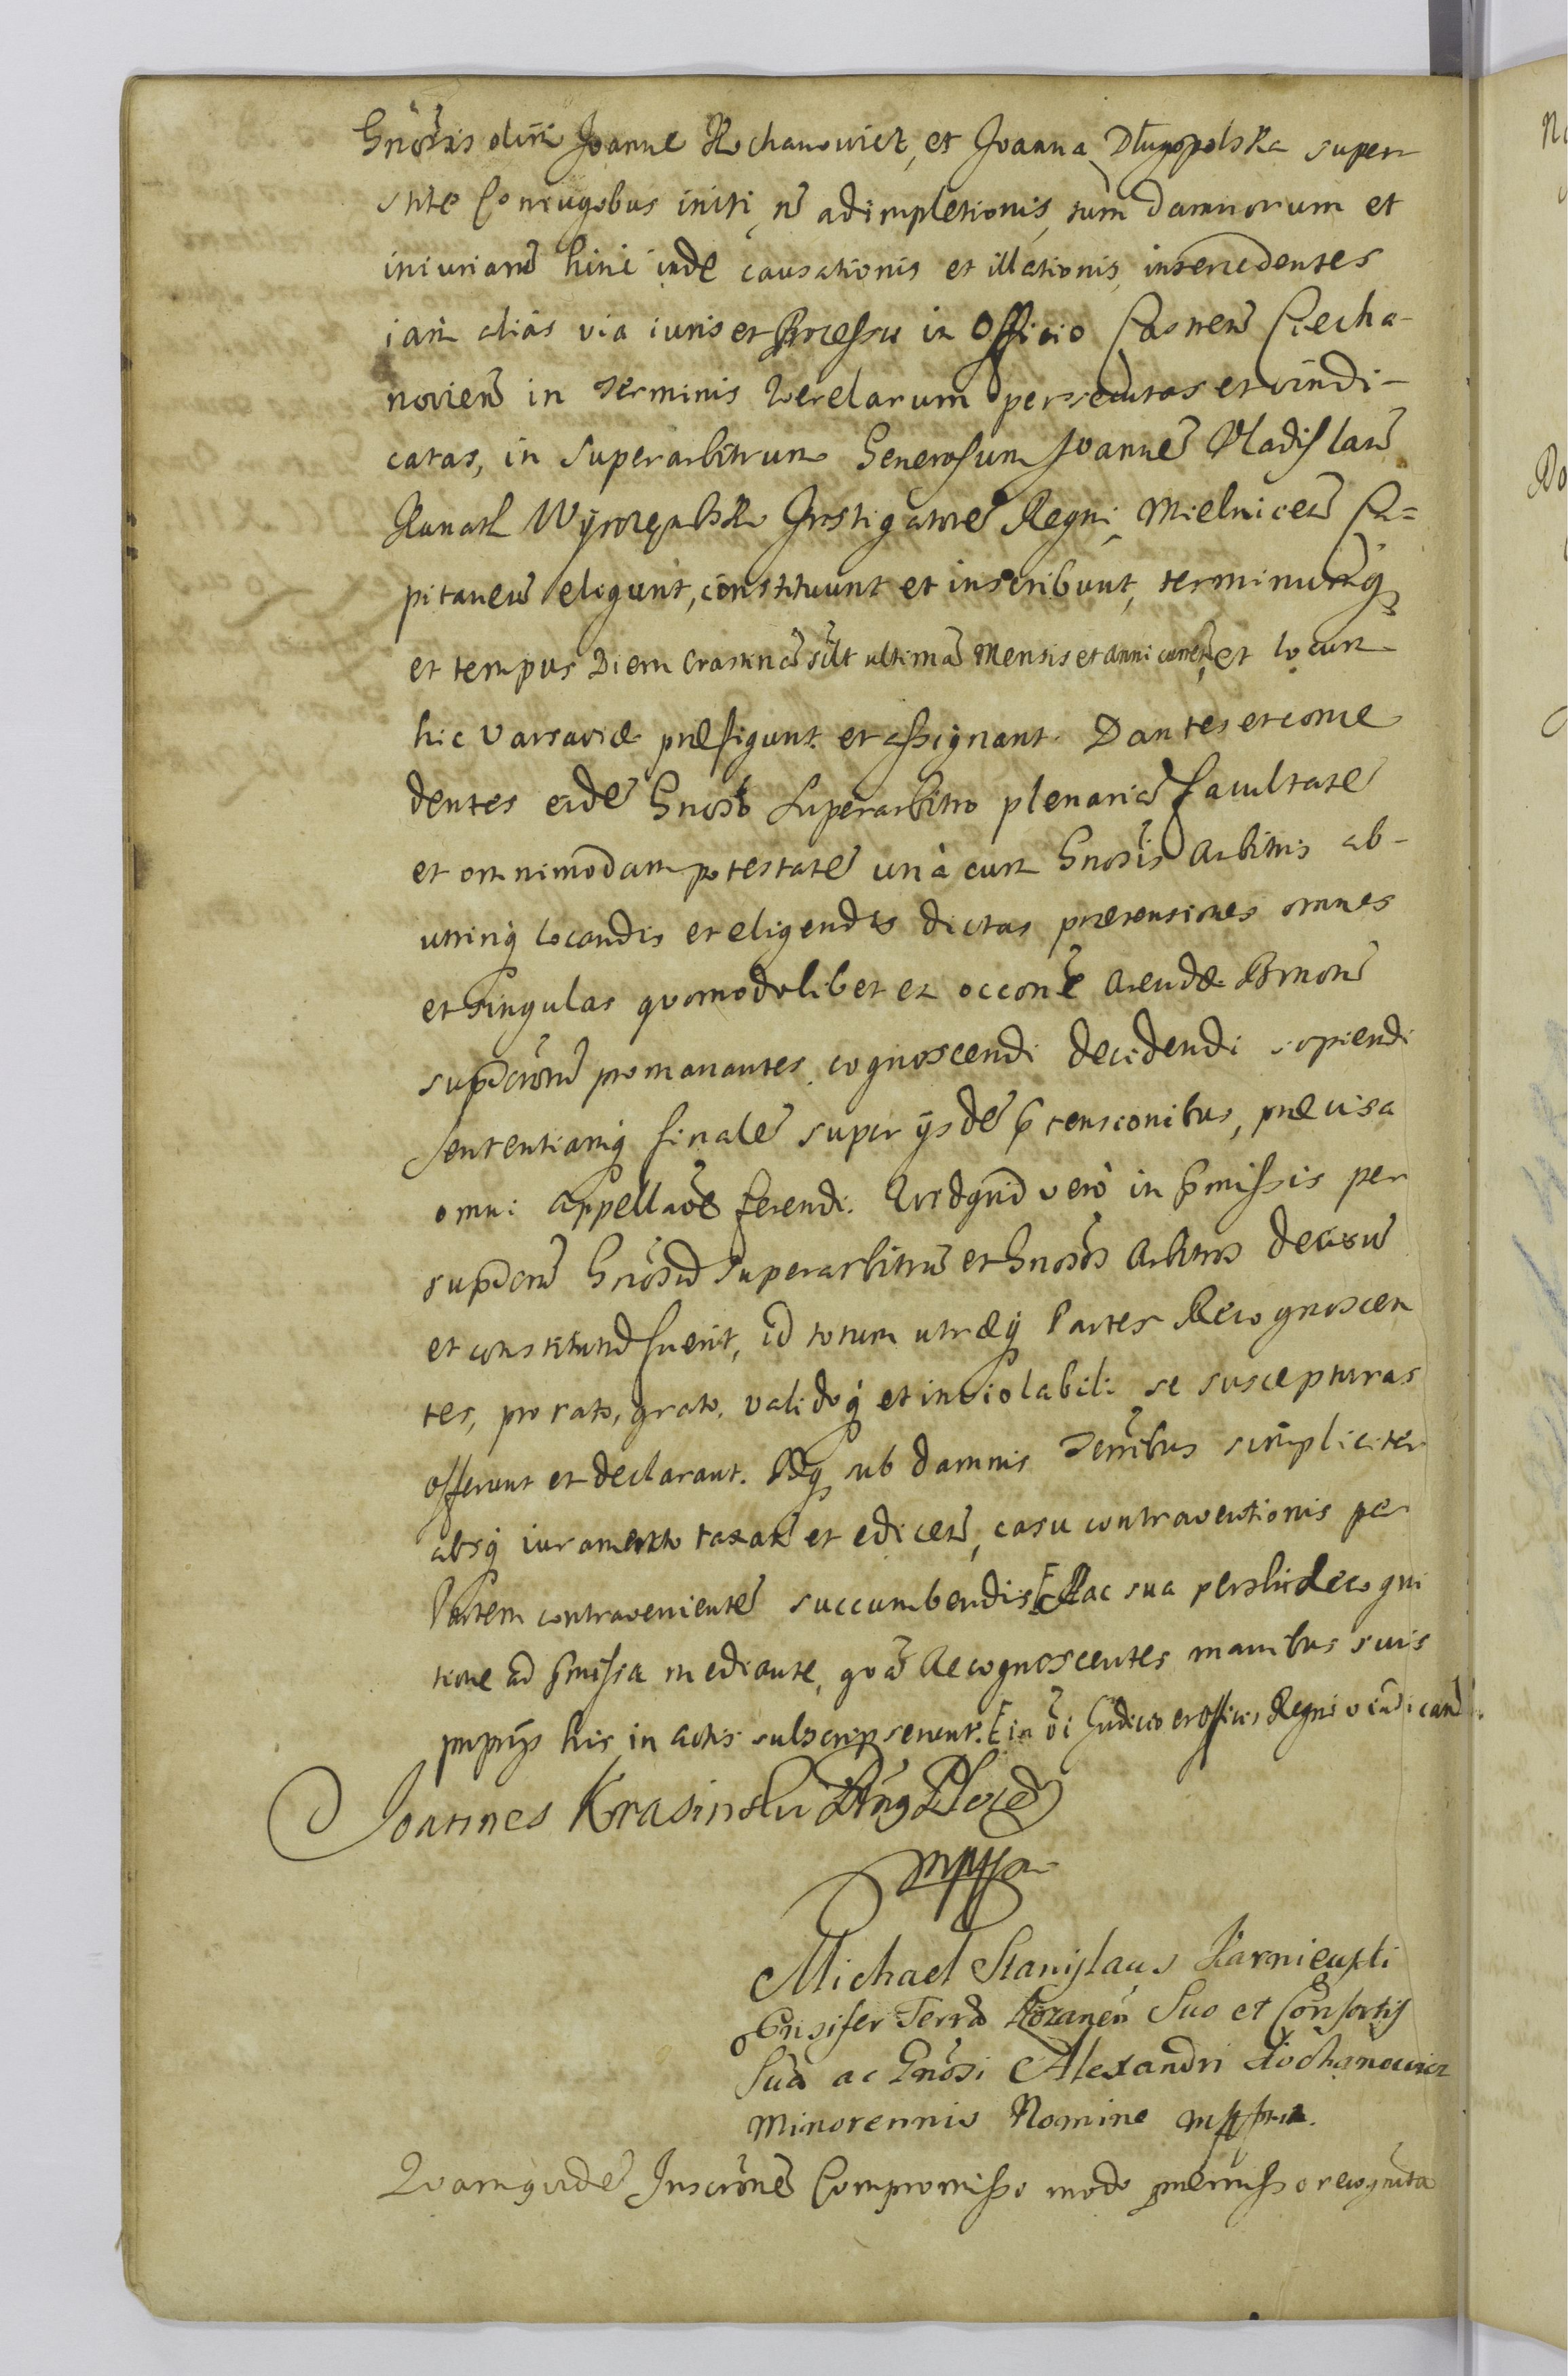 Gnosis olim Joanne Kochanowicz, et Joanna Długopolska super
stite Coniugobus initi, nō adimpletionis, tum damnorum et
iniuriarū hinc inde causationis et illationis, intercedentes
iam alias via iuris et Processu in Officio Castren̄ Ciecha-
novien̄ in Terminis Querelarum persecutas et vindi-
catas, in Superarbitrum Generosum Joannē Vladislaū
Kunath Wyrozębski Instigatorē Regni, Mielnicen̄ Ca=
pitaneū eligunt, constituunt et inscribunt, terminumq₃
et tempus Diem Crastinā scilt ultimā Mensis et Anni curren̄, et locum
hic Varsaviæ præfigunt et assignant. Dantes et conce
dentes eidē Gnoso Superarbitro plenariā facultatē
et omnimodam potestatē unà cum Gnosis Arbitris ab-
utrinq₃ locandis et eligendis dictas prætensiones omnes
et singulas quomodolibet ex occone Arendæ Bonorū
supdctorū promanantes cognoscendi decidendi sopiendi
Sententiamq₃ finalē super ijsdē ptensionibus, præcisa
omni Appellaōe ferendi. Quidquid verò in pmissis per
supdctū Gnosū Superarbitrū et Gnosos Arbitros decisū
et constitutū fuerit, id totum utræq₃ Partes Recognoscen
tes, pro rato, grato, validoq₃ et inviolabili se suscepturas
offerunt et declarant. Idq₃ sub damnis Terribus simpliciter
absq₃ iuramento taxan̄ et edicen̄, casu contraventionis per
Partem contravenientē succumbendis [Hac sua psenti Recogni
tione ad pmissa mediante, quā Recognoscentes manibus suis
proprijs hic in Actis subscripserunt. [in oi Judicio et Officio Regni vindicand.
Joannes Krasinski
mppa
Michael Stanislaus Karnieuski
Ensifer Terræ Rozanen̄ Suo et Consortis
Suæ ac Gnosi Alexandri Kochanowicz
Minorennis Nomine mppria.
Quamquidē Inscronē Compromisso modo præmisso recognita